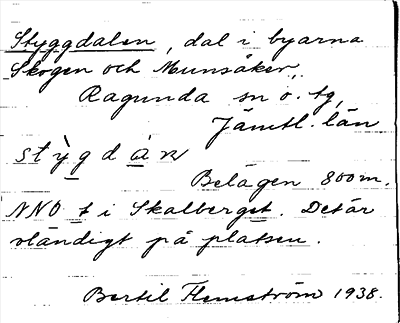 Styggdalen, dal i byarna
Skogen och Munsåker,
Ragunda sn o. tg,
Jämtl. län
stỳgdan
Belägen 800 m.
NNO t i Skalberget. Det är
vländigt på platsen.
Bertil Flemström 1938.